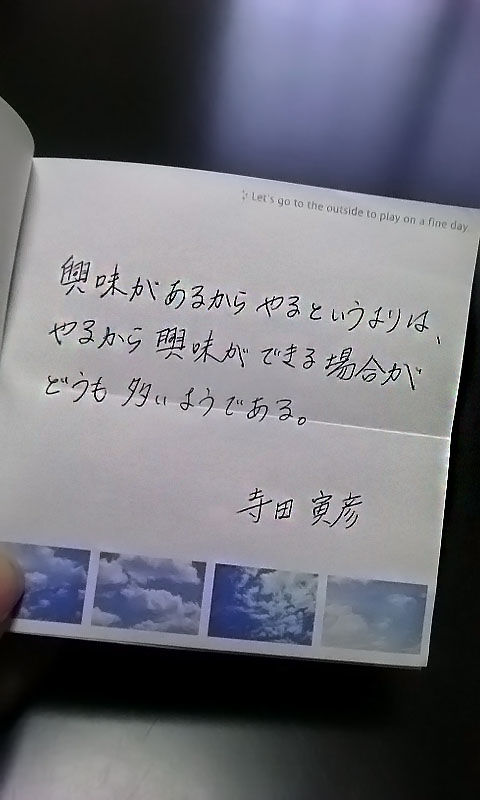 Let's go to the outside to play on a fine day
興味があるからやるというよりは、
やるから興味ができる場合が
どうも多いようである。
寺田寅彦